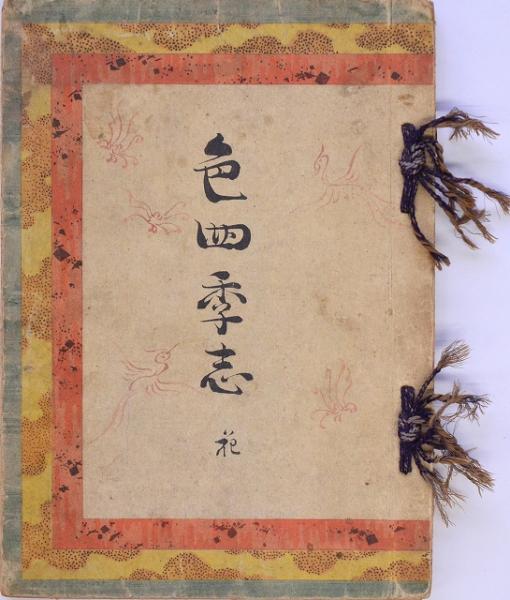 色四季志
花